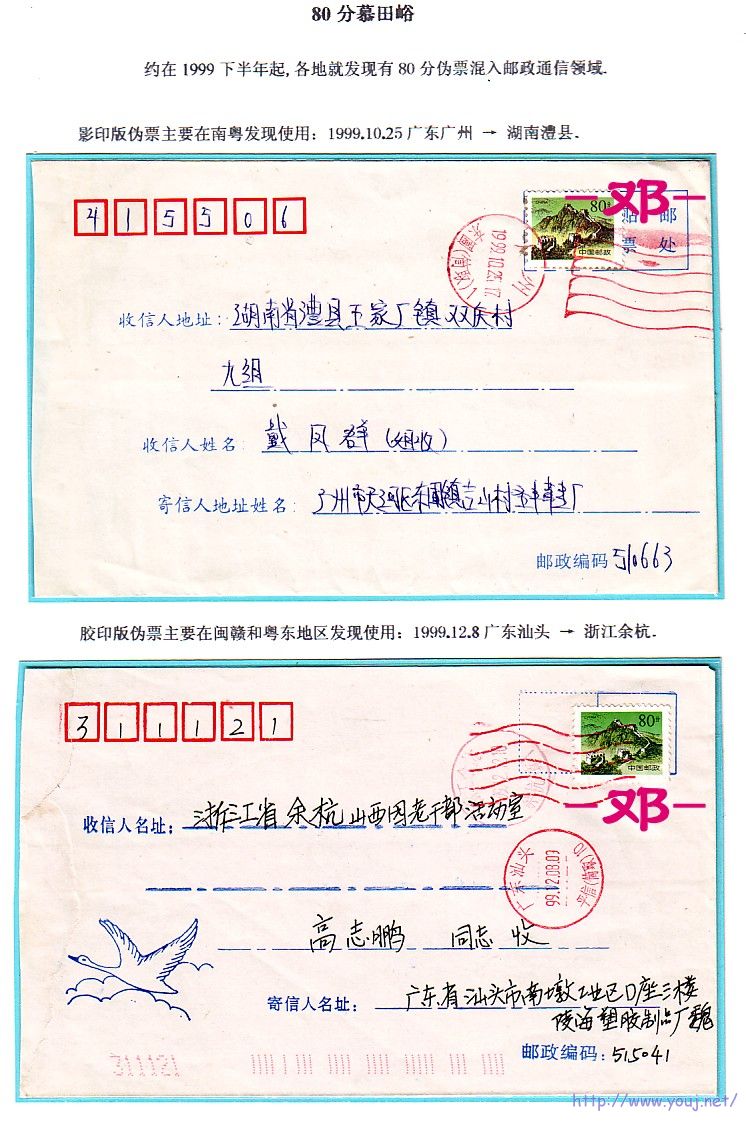 80 分慕田峪
约在 1999 下半年起, 各地就发现有 80 分伪票混入邮政通信领域.
影印版伪票主要在南粤发现使用: 1999.10.25 广东广州 → 湖南澧县.
415506
80分
中国邮政
邓
贴 邮
票 处
1999.10.25.17
收信人地址: 湖南省澧县王家厂镇双庆村
九组
收信人姓名: 戴凤群(姐收)
寄信人地址姓名: 广州市天河区东圃镇吉山村
邮政编码 510663
胶印版伪票主要在闽赣和粤东地区发现使用: 1999.12.8 广东汕头 → 浙江余杭.
311121
80分
中国邮政
邓
收信人名址: 浙江省余杭山西园老干部活动室
广东汕头
99.12.08.03
高志鹏 同志 收
寄信人名址: 广东省汕头市南墩工业区D座三楼
陵海塑胶制品厂魏
311121
邮政编码: 515041
http://www.youj.net/